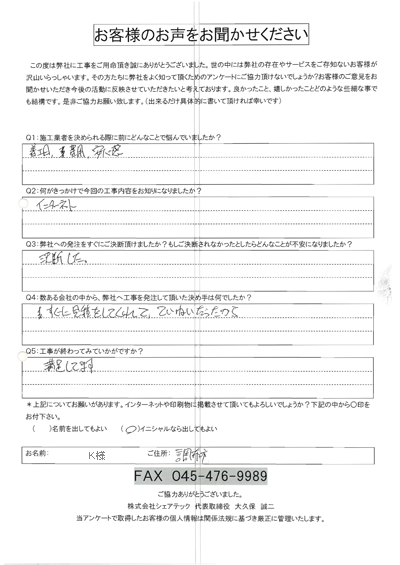 お客様のお声をお聞かせください
この度は弊社に工事をご用命頂き誠にありがとうございました。世の中には弊社の存在やサービスをご存知ないお客様が
沢山いらっしゃいます。その方たちに弊社をよく知って頂くためのアンケートにご協力頂けないでしょうか?お客様のご意見をお
聞かせいただき今後の活動に反映させていただきたいと考えております。良かったこと、嬉しかったことどのような些細な事で
も結構です。是非ご協力お願い致します。(出来るだけ具体的に書いて頂ければ幸いです)
Q1:施工業者を決められる際に前にどんなことで悩んでいましたか?
費用、安心感
Q2:何がきっかけで今回の工事内容をお知りになりましたか?
インターネット
Q3:弊社への発注をすぐにご決断頂けましたか?もしご決断されなかったとしたらどんなことが不安になりましたか?
決断した。
Q4:数ある会社の中から、弊社へ工事を発注して頂いた決め手は何でしたか?
すぐに見積をしてくれて、ていねいだったから
Q5:工事が終わってみていかがですか?
満足してます
*上記についてお願いがあります。インターネットや印刷物に掲載させて頂いてもよろしいでしょうか?下記の中から〇印を
お付下さい。
( )名前を出してもよい (〇)イニシャルなら出してもよい
お名前: K様 ご住所: 調布市
FAX 045-476-9989
ご協力ありがとうございました。
株式会社シェアテック 代表取締役 大久保 誠二
当アンケートで取得したお客様の個人情報は関係法規に基づき厳正に管理いたします。